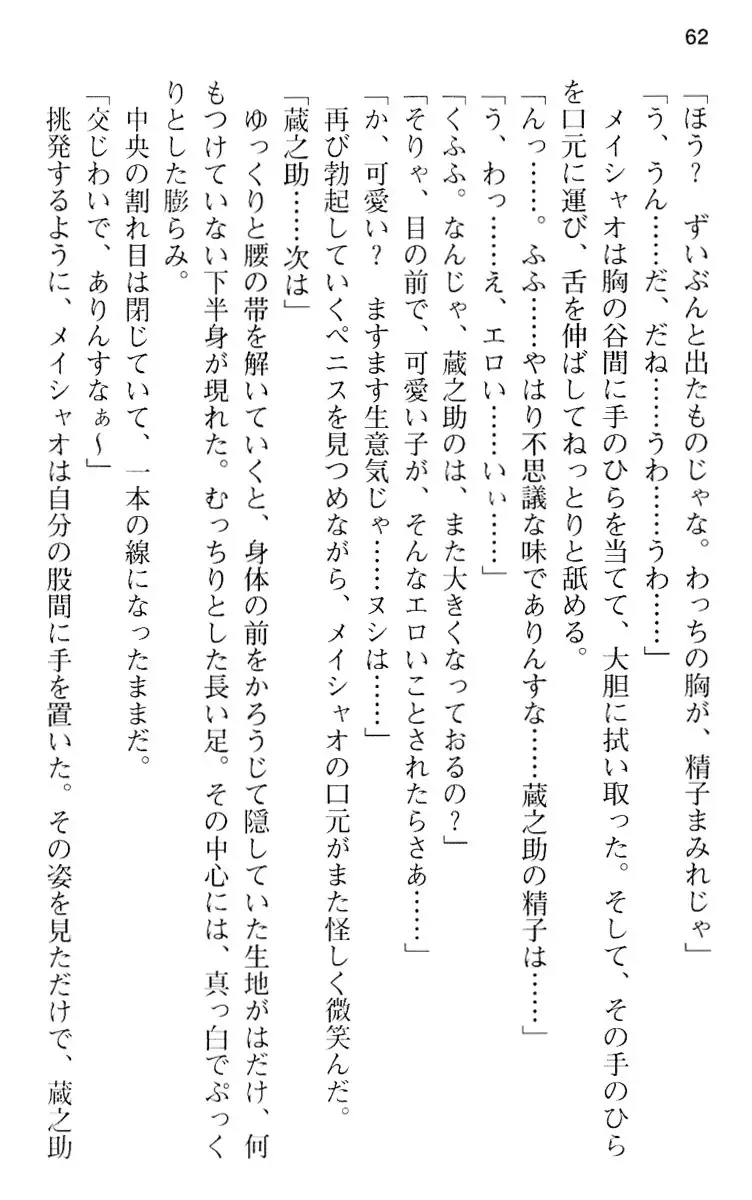 62
「ほう？　ずいぶんと出たものじゃな。わっちの胸が、精子まみれじゃ」
「う、うん……だ、だね……うわ……うわ……」
　メイシャオは胸の谷間に手のひらを当てて、大胆に拭い取った。そして、その手のひら
を口元に運び、舌を伸ばしてねっとりと舐める。
「んっ……。ふふ……やはり不思議な味でありんすな……蔵之助の精子は……」
「う、わっ……え、エロい……いぃ……」
「くふふ。なんじゃ、蔵之助のは、また大きくなっておるの？」
「そりゃ、目の前で、可愛い子が、そんなエロいことされたらさぁ……」
「か、可愛い？　ますます生意気じゃ……ヌシは……」
　再び勃起していくペニスを見つめながら、メイシャオの口元がまた怪しく微笑んだ。
「蔵之助……次は」
　ゆっくりと腰の帯を解いていくと、身体の前をかろうじて隠していた生地がはだけ、何
もつけていない下半身が現れた。むっちりとした長い足。その中心には、真っ白でぷっく
りとした膨らみ。
　中央の割れ目は閉じていて、一本の線になったままだ。
「交じわいで、ありんすなぁ～」
　挑発するように、メイシャオは自分の股間に手を置いた。その姿を見ただけで、蔵之助